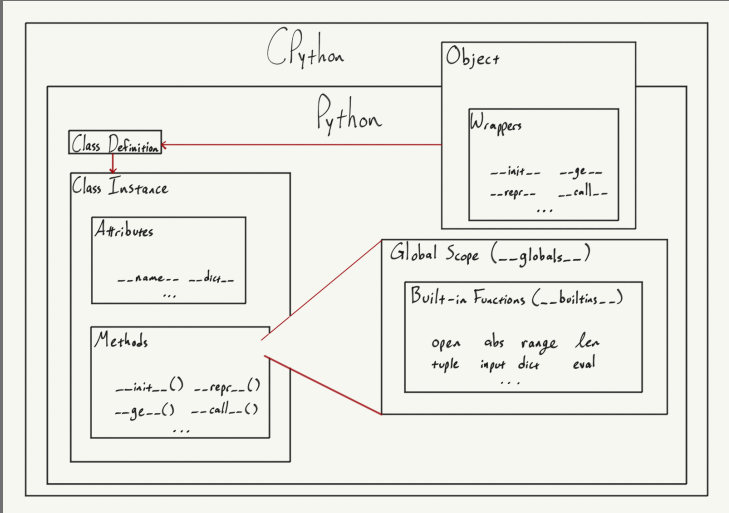 CPython
Object
Python
Wrappers
__init__ __ge__
__repr__ __call__
...
Class Definition
Class Instance
Attributes
__name__ __dict__
...
Methods
__init__() __repr__()
__ge__() __call__()
...
Global Scope (__globals__)
Built-in Functions (__builtins__)
open abs range len
tuple input dict eval
...